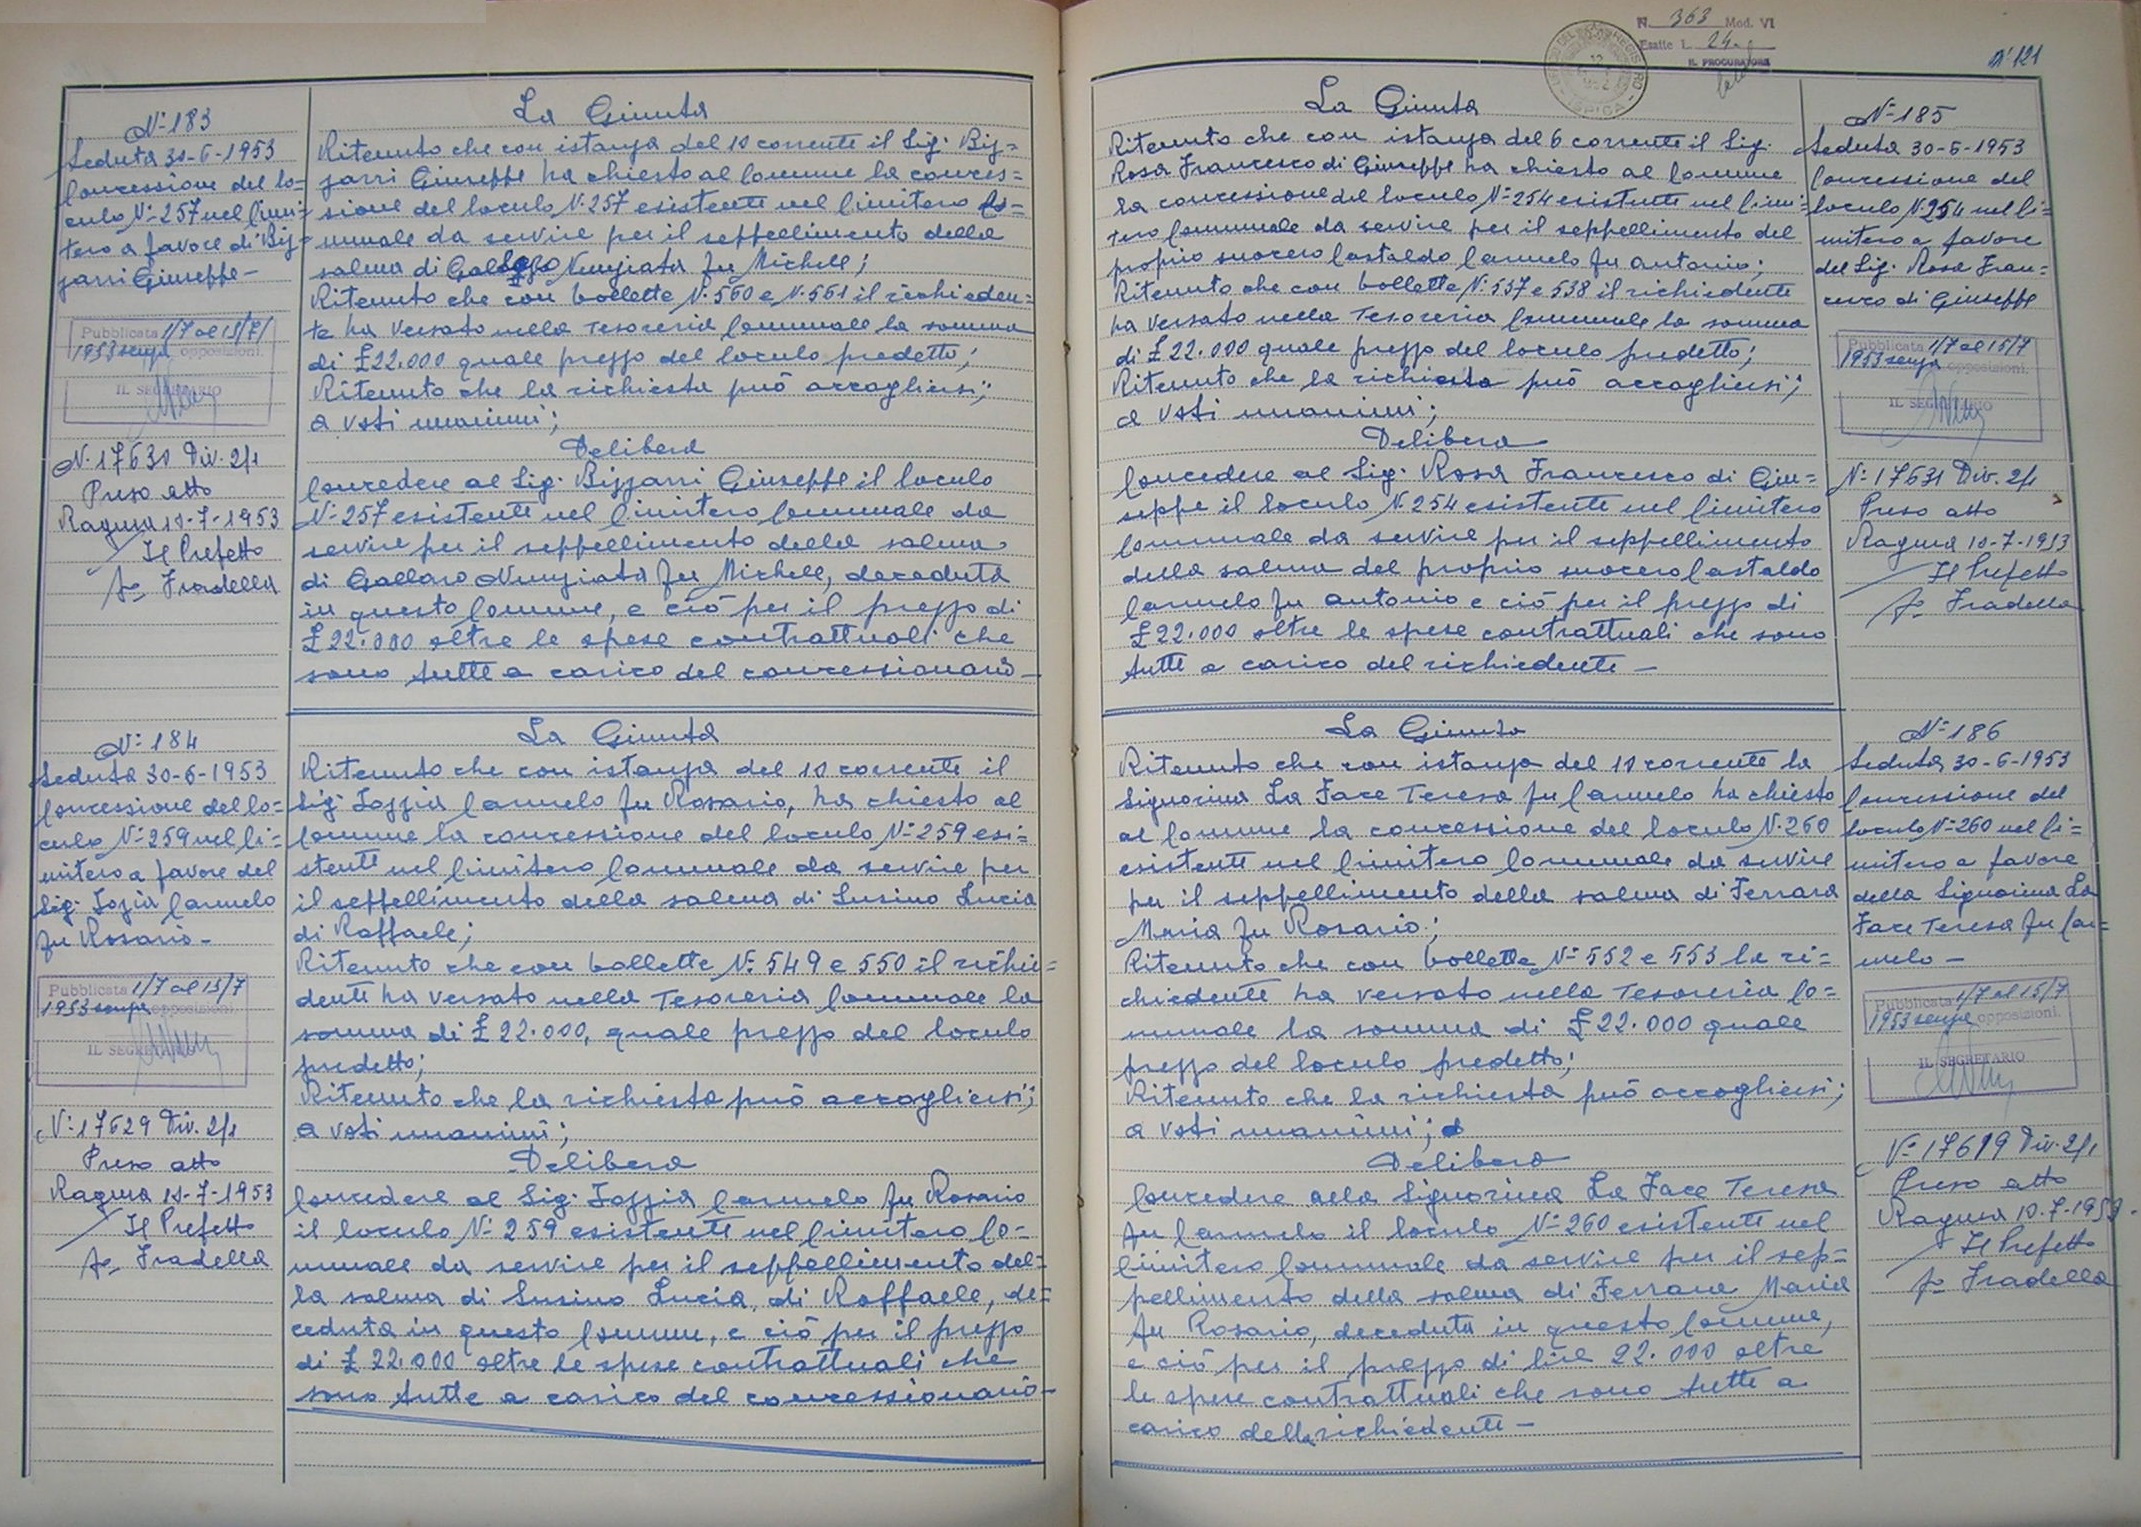 N. 363 Mod. VI
Esatte L. 24.
IL PROCURATORE
N° 121
N° 183
Seduta 30-6-1953
Concessione del lo=
culo N° 257 nel Cimi-
tero a favore di Biz-
zarri Giuseppe -
Pubblicata 1/7 al 15/7/
1953 senza opposizioni.
IL SEGRETARIO
N. 17630 Div. 2/1
Preso atto
Ragusa 10-7-1953
Il Prefetto
fo Fradella
La Giunta
Ritenuto che con istanza del 10 corrente il Sig. Biz=
zarri Giuseppe ha chiesto al Comune la conces=
sione del loculo N. 257 esistente nel Cimitero Co=
munale da servire per il seppellimento della
salma di Gallaro Nunziata fu Michele;
Ritenuto che con bollette N. 560 e N. 561 il richieden=
te ha versato nella Tesoreria Comunale la somma
di £ 22.000 quale prezzo del loculo predetto;
Ritenuto che la richiesta può accogliersi;
a voti unanimi;
Delibera
Concedere al Sig. Bizzarri Giuseppe il loculo
N° 257 esistente nel Cimitero Comunale da
servire per il seppellimento della salma
di Gallaro Nunziata fu Michele, deceduta
in questo Comune, e ciò per il prezzo di
£ 22.000 oltre le spese contrattuali che
sono tutte a carico del concessionario -
N° 184
Seduta 30-6-1953
Concessione del lo=
culo N° 259 nel Ci=
mitero a favore del
Sig. Iozia Carmelo
fu Rosario -
Pubblicata 1/7 al 15/7
1953 senza opposizioni.
IL SEGRETARIO
N° 17629 Div. 2/1
Preso atto
Ragusa 10-7-1953
Il Prefetto
fo Fradella
La Giunta
Ritenuto che con istanza del 10 corrente il
Sig. Iozzia Carmelo fu Rosario, ha chiesto al
Comune la concessione del loculo N° 259 esi=
stente nel Cimitero Comunale da servire per
il seppellimento della salma di Susino Lucia
di Raffaele;
Ritenuto che con bollette N° 549 e 550 il richie=
dente ha versato nella Tesoreria Comunale la
somma di £ 22.000, quale prezzo del loculo
predetto;
Ritenuto che la richiesta può accogliersi;
a voti unanimi;
Delibera
Concedere al Sig. Iozzia Carmelo fu Rosario
il loculo N° 259 esistente nel Cimitero Co=
munale da servire per il seppellimento del=
la salma di Susino Lucia, di Raffaele, de=
ceduta in questo Comune, e ciò per il prezzo
di £ 22.000 oltre le spese contrattuali che
sono tutte a carico del concessionario -
La Giunta
Ritenuto che con istanza del 6 corrente il Sig.
Rosa Francesco di Giuseppe ha chiesto al Comune
la concessione del loculo N° 254 esistente nel Cimi=
tero Comunale da servire per il seppellimento del
proprio suocero Castaldo Carmelo fu Antonio;
Ritenuto che con bollette N. 537 e 538 il richiedente
ha versato nella Tesoreria Comunale la somma
di £ 22.000 quale prezzo del loculo predetto;
Ritenuto che la richiesta può accogliersi;
a voti unanimi;
Delibera
Concedere al Sig. Rosa Francesco di Giu=
seppe il loculo N. 254 esistente nel Cimitero
Comunale da servire per il seppellimento
della salma del proprio suocero Castaldo
Carmelo fu Antonio e ciò per il prezzo di
£ 22.000 oltre le spese contrattuali che sono
tutte a carico del richiedente -
N° 185
Seduta 30-6-1953
Concessione del
loculo N. 254 nel Ci=
mitero a favore
del Sig. Rosa Fran=
cesco di Giuseppe
Pubblicata 1/7 al 15/7
1953 senza opposizioni.
IL SEGRETARIO
N° 17631 Div. 2/1
Preso atto
Ragusa 10-7-1953
Il Prefetto
fo Fradella
La Giunta
Ritenuto che con istanza del 10 corrente la
Signorina La Face Teresa fu Carmelo ha chiesto
al Comune la concessione del loculo N. 260
esistente nel Cimitero Comunale da servire
per il seppellimento della salma di Ferrara
Maria fu Rosario;
Ritenuto che con bollette N° 552 e 553 la ri=
chiedente ha versato nella Tesoreria Co=
munale la somma di £ 22.000 quale
prezzo del loculo predetto;
Ritenuto che la richiesta può accogliersi;
a voti unanimi;
Delibera
Concedere alla Signorina La Face Teresa
fu Carmelo il loculo N° 260 esistente nel
Cimitero Comunale da servire per il sep=
pellimento della salma di Ferrara Maria
fu Rosario, deceduta in questo Comune,
e ciò per il prezzo di lire 22.000 oltre
le spese contrattuali che sono tutte a
carico della richiedente -
N° 186
Seduta 30-6-1953
Concessione del
loculo N° 260 nel Ci=
mitero a favore
della Signorina La
Face Teresa fu Car=
melo -
Pubblicata 1/7 al 15/7
1953 senza opposizioni.
IL SEGRETARIO
N° 17619 Div. 2/1
Preso atto
Ragusa 10-7-1953.
Il Prefetto
fo Fradella